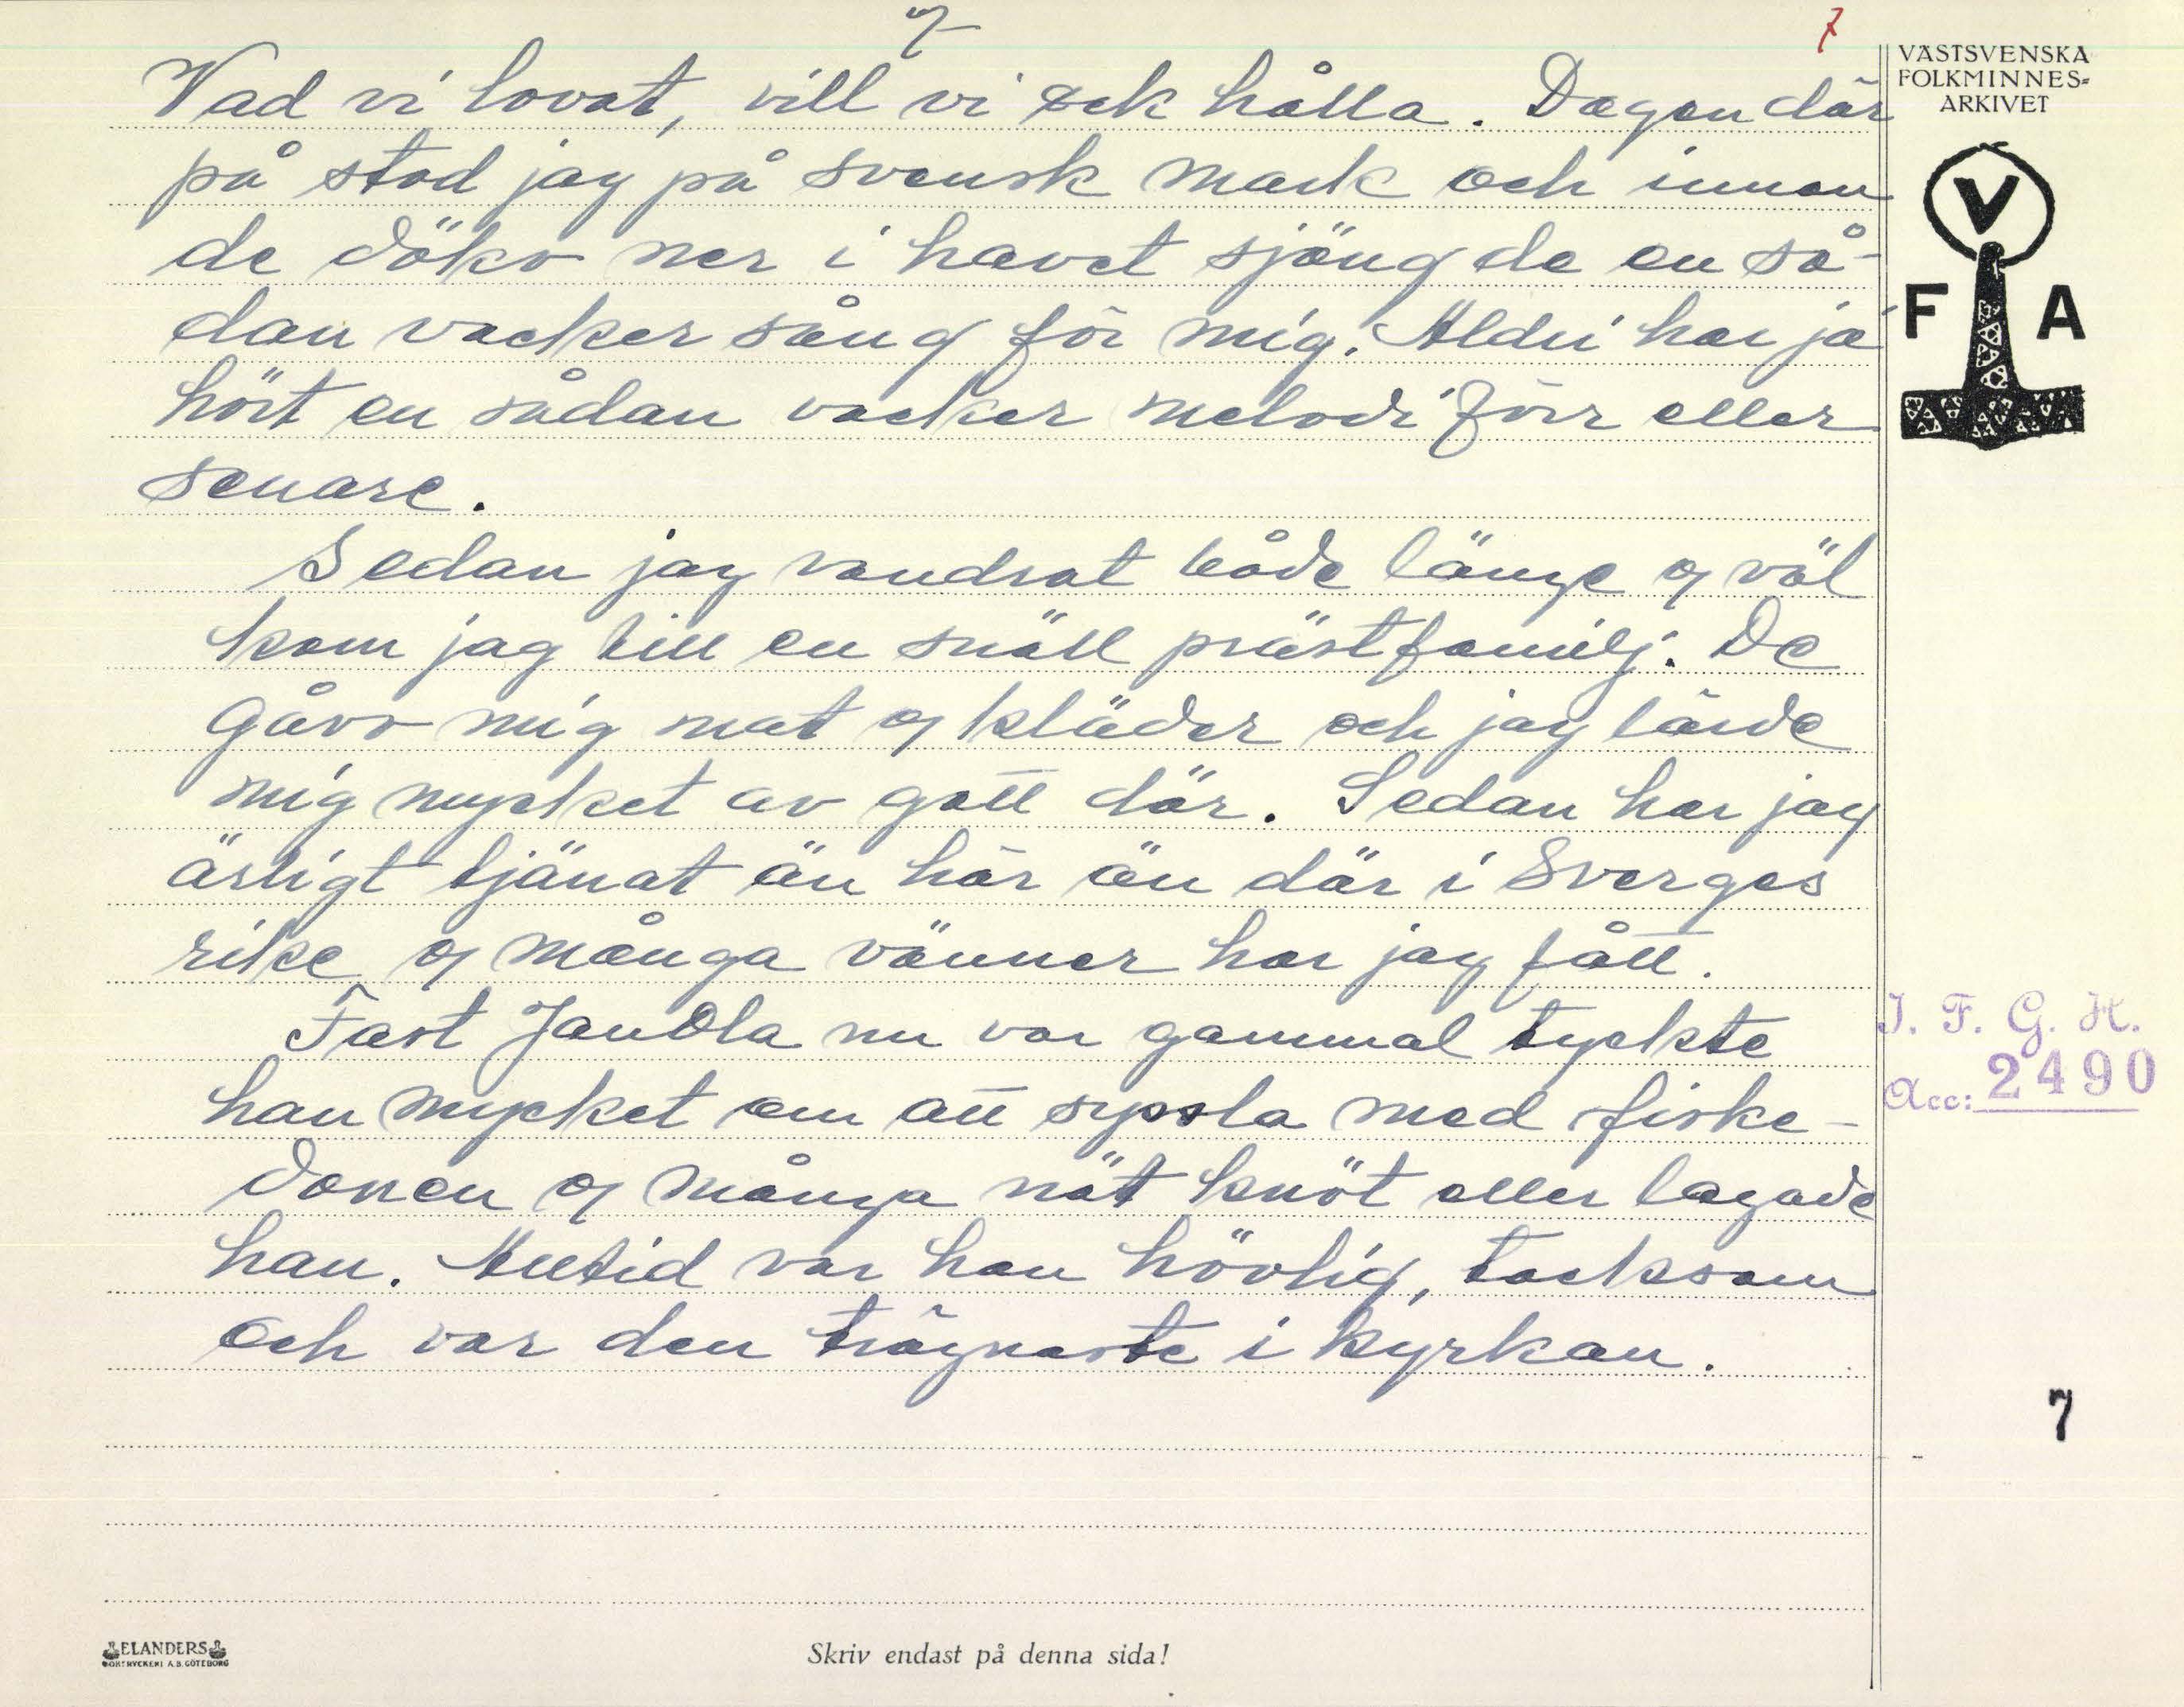 7
7
VÄSTSVENSKA
FOLKMINNES=
ARKIVET
V
F A
Vad vi lovat, vill vi ock hålla. Dagen där
på stod jag på svensk mark och innan
de döko ner i havet sjöng de en så-
dan vacker sång för mig. Aldri har ja
hört en sådan vacker melodi förr eller
senare.
Sedan jag vandrat både länge o väl
kom jag till en snäll prästfamilj. De
gåvo mig mat o kläder och jag lärde
mig mycket av gott där. Sedan har jag
ärligt tjänat än här än där i Sverges
rike o många vänner har jag fått.
Fast JanOla nu var gammal tyckte
han mycket om att syssla med fiske-
donen o många nät knöt eller lagade
han. Alltid var han hövlig, tacksam
och var den trägnaste i kyrkan.
I. F. G. H.
Acc: 2490
7
ELANDERS
BOKTRYCKERI A.B. GÖTEBORG
Skriv endast på denna sida!